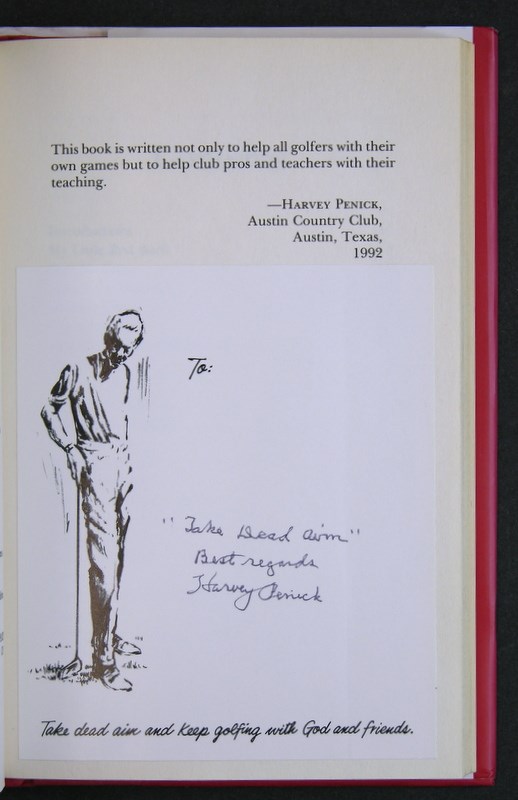 This book is written not only to help all golfers with their
own games but to help club pros and teachers with their
teaching.
—HARVEY PENICK,
Austin Country Club,
Austin, Texas,
1992
To:
"Take Dead aim"
Best regards
Harvey Penick
Take dead aim and keep golfing with God and friends.